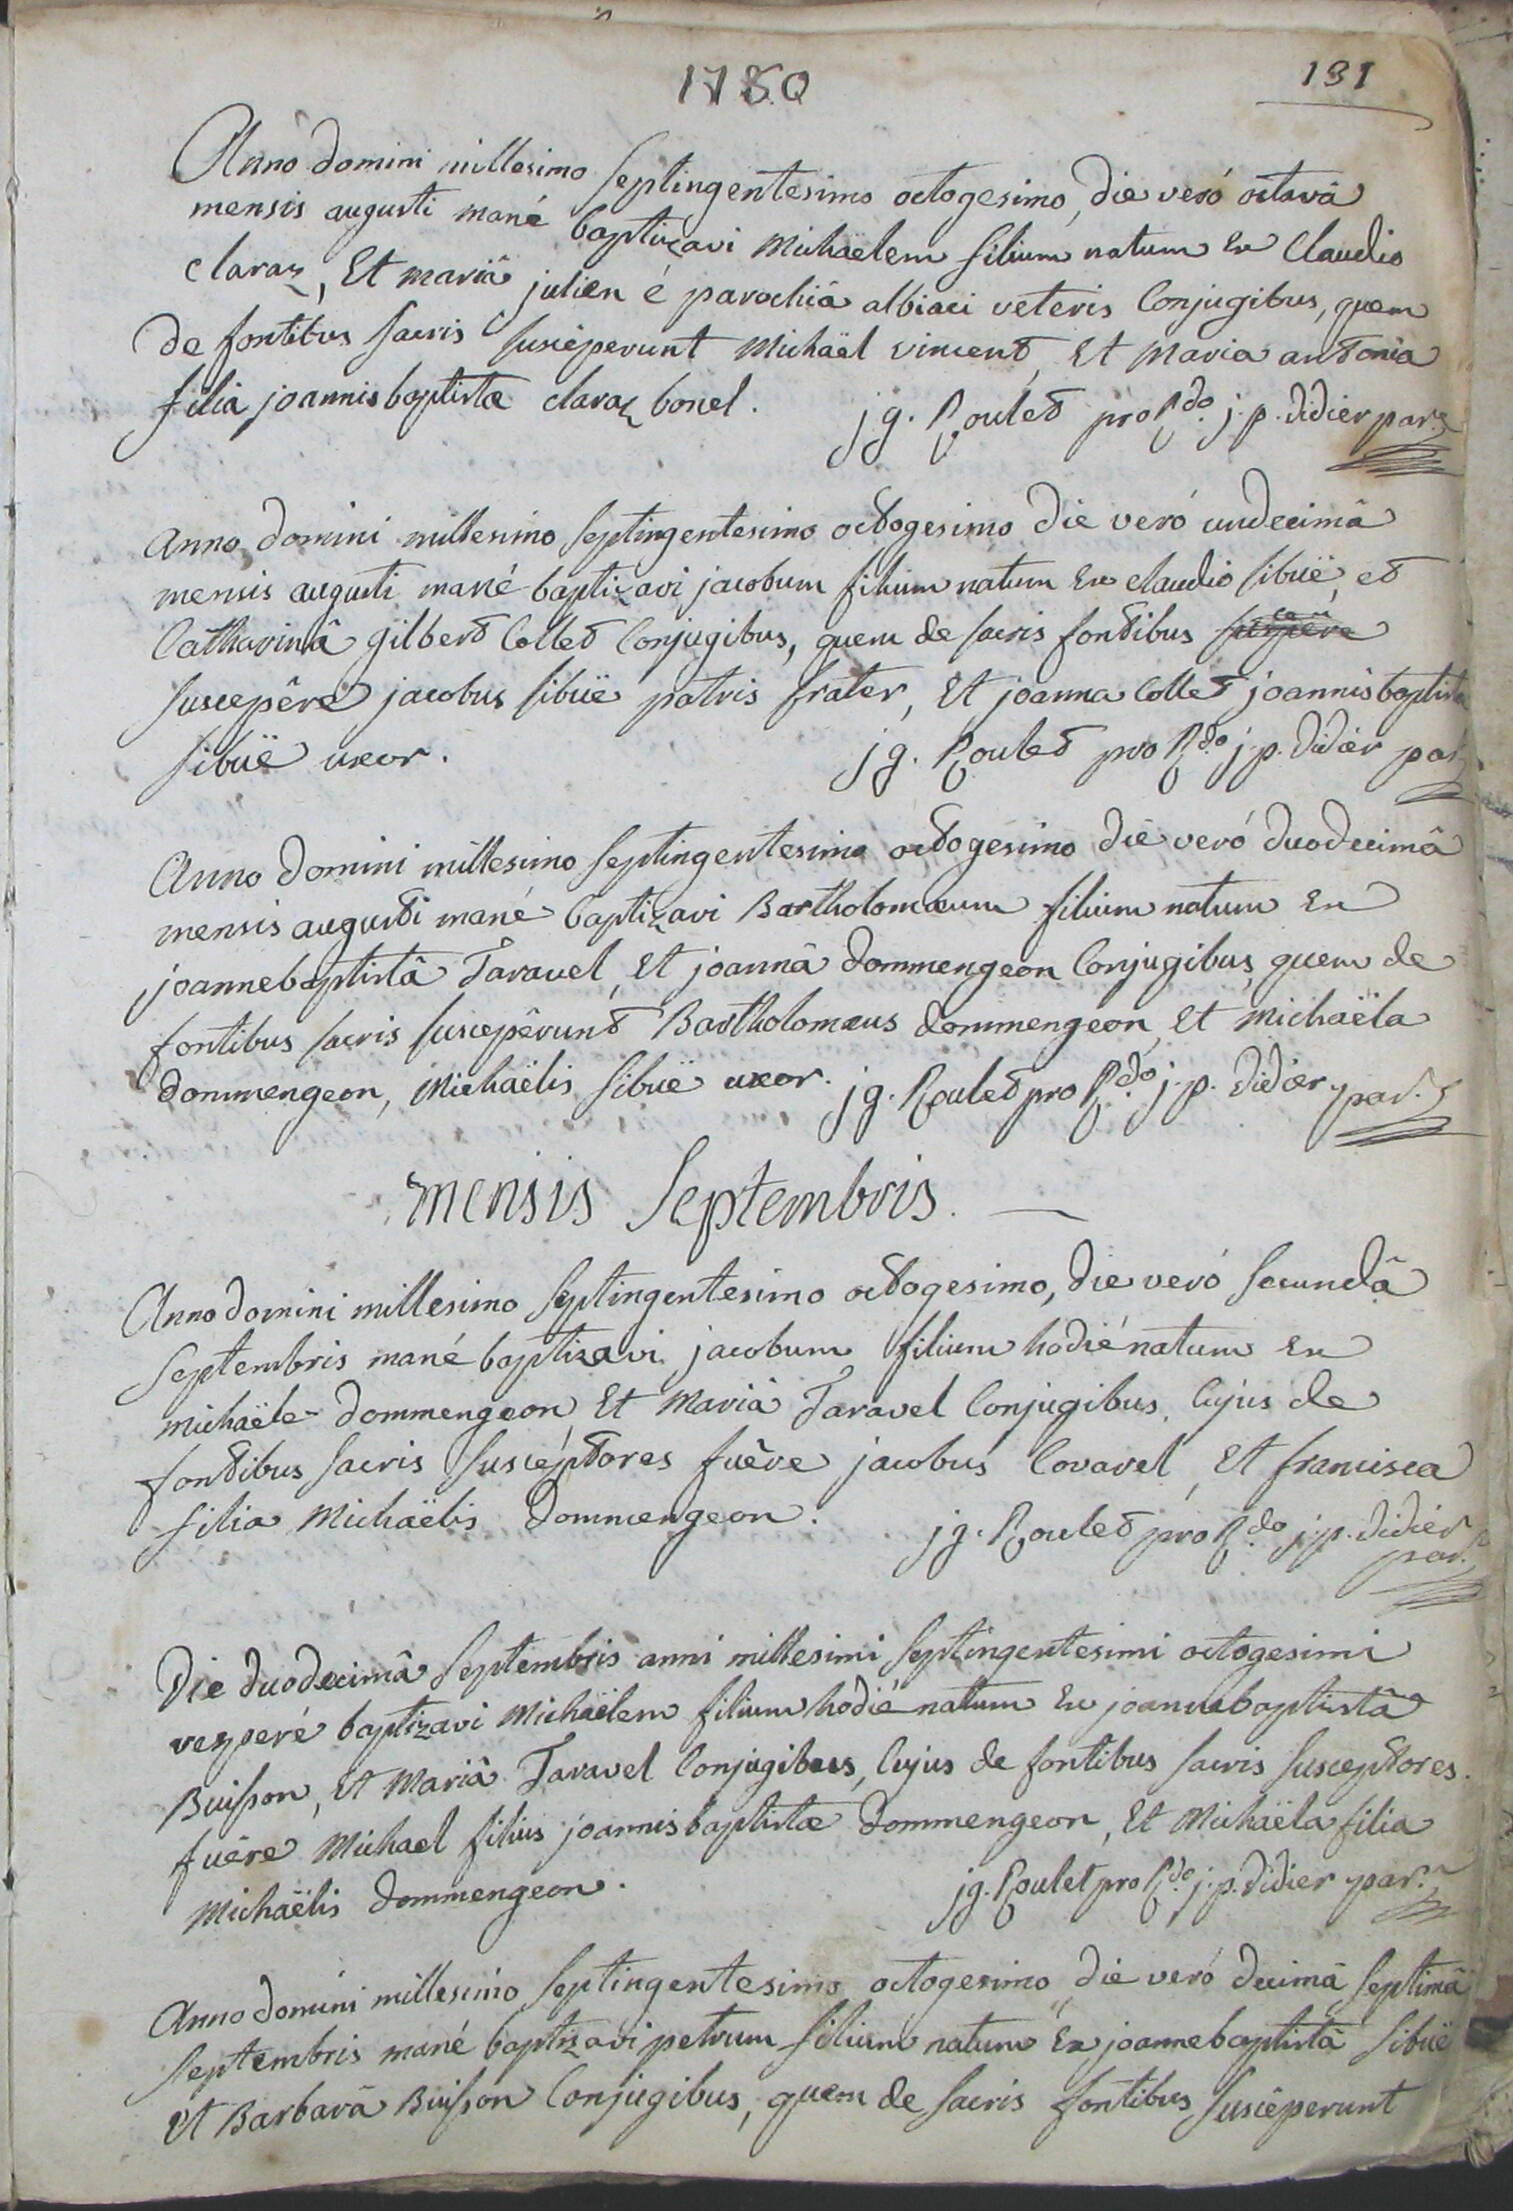 1780
131
Anno domini millesimo septingentesimo octogesimo, die veró octavâ
mensis augusti mané baptizavi Michaëlem filium natum ex Claudio
claraz, Et mariâ julien é parochiâ albiaci veteris Conjugibus, quem
de fontibus sacris suscêperunt Michaël vincent, Et Maria antonia
filia joannisbaptistæ claraz bonel.
jg. Roulet pro Rdo. j. p. didier par.
Anno domini millesimo septingentesimo octogesimo die veró undecimâ
mensis augusti mané baptizavi jacobum filium natum Ex claudio sibuë, et
Catharinâ gilbert Collet Conjugibus, quem de sacris fontibus
suscepêre jacobus sibuë patris frater, Et joanna Collet joannisbaptistæ
sibuë uxor.
jg. Roulet pro Rdo j. p. didier par
Anno domini millesimo septingentesimo octogesimo die veró duodecimâ
mensis augusti mané baptizavi Bartholomæum filium natum Ex
joannebaptistâ Taravel, Et joannâ dommengeon Conjugibus, quem de
fontibus sacris suscepêrunt Bartholomæus dommengeon, Et Michaëla
dommengeon, Michaëlis sibuë uxor.
jg. Roulet pro Rdo. j. p. didier par.
mensis septembris.
Anno domini millesimo septingentesimo octogesimo, die veró secundâ
septembris mané baptizavi jacobum filium hodié natum Ex
michaële dommengeon Et Mariâ Taravel Conjugibus, Cujus de
fontibus sacris suscéptores fuêre jacobus Covarel, Et francisca
filia Michaëlis dommengeon.
jg. Roulet pro Rdo j. p. didier
par.
Die duodecimâ septembris anni millesimi septingentesimi octogesimi
vesperé baptizavi Michaëlem filium hodié natum Ex joannebaptistâ
Buisson, Et Mariâ Taravel Conjugibus, Cujus de fontibus sacris susceptores
fuêre Michael filius joannisbaptistæ dommengeon, Et Michaëla filia
Michaëlis dommengeon.
jg. Roulet pro Rdo. j. p. didier par.
Anno domini millesimo septingentesimo octogesimo, die veró decimâ septimâ
septembris mané baptizavi petrum filium natum Ex joannebaptistâ sibuë
Et Barbarâ Buisson Conjugibus, quem de sacris fontibus suscêperunt